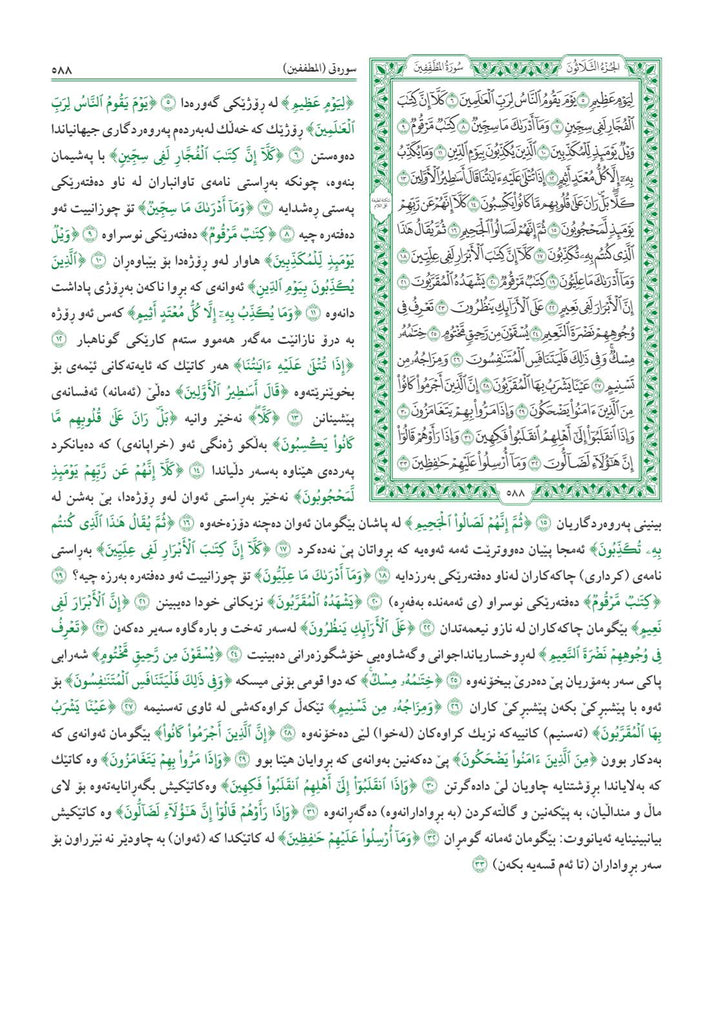 سورەتی (المطففین)
٥٨٨
الجُزءُ الثَّلَاثُونَ
سُورَةُ المُطَفِّفِينَ
لِيَوْمٍ عَظِيمٍ ٥ يَوْمَ يَقُومُ ٱلنَّاسُ لِرَبِّ ٱلْعَٰلَمِينَ ٦ كَلَّآ إِنَّ كِتَٰبَ
ٱلْفُجَّارِ لَفِى سِجِّينٍ ٧ وَمَآ أَدْرَىٰكَ مَا سِجِّينٌ ٨ كِتَٰبٌ مَّرْقُومٌ ٩
وَيْلٌ يَوْمَئِذٍ لِّلْمُكَذِّبِينَ ١٠ ٱلَّذِينَ يُكَذِّبُونَ بِيَوْمِ ٱلدِّينِ ١١ وَمَا يُكَذِّبُ
بِهِۦٓ إِلَّا كُلُّ مُعْتَدٍ أَثِيمٍ ١٢ إِذَا تُتْلَىٰ عَلَيْهِ ءَايَٰتُنَا قَالَ أَسَٰطِيرُ ٱلْأَوَّلِينَ ١٣
كَلَّا ۖ بَلْ ۜ رَانَ عَلَىٰ قُلُوبِهِم مَّا كَانُوا۟ يَكْسِبُونَ ١٤ كَلَّآ إِنَّهُمْ عَن رَّبِّهِمْ
يَوْمَئِذٍ لَّمَحْجُوبُونَ ١٥ ثُمَّ إِنَّهُمْ لَصَالُوا۟ ٱلْجَحِيمِ ١٦ ثُمَّ يُقَالُ هَٰذَا
ٱلَّذِى كُنتُم بِهِۦ تُكَذِّبُونَ ١٧ كَلَّآ إِنَّ كِتَٰبَ ٱلْأَبْرَارِ لَفِى عِلِّيِّينَ ١٨
وَمَآ أَدْرَىٰكَ مَا عِلِّيُّونَ ١٩ كِتَٰبٌ مَّرْقُومٌ ٢٠ يَشْهَدُهُ ٱلْمُقَرَّبُونَ ٢١
إِنَّ ٱلْأَبْرَارَ لَفِى نَعِيمٍ ٢٢ عَلَى ٱلْأَرَآئِكِ يَنظُرُونَ ٢٣ تَعْرِفُ فِى
وُجُوهِهِمْ نَضْرَةَ ٱلنَّعِيمِ ٢٤ يُسْقَوْنَ مِن رَّحِيقٍ مَّخْتُومٍ ٢٥ خِتَٰمُهُۥ
مِسْكٌ ۚ وَفِى ذَٰلِكَ فَلْيَتَنَافَسِ ٱلْمُتَنَٰفِسُونَ ٢٦ وَمِزَاجُهُۥ مِن
تَسْنِيمٍ ٢٧ عَيْنًا يَشْرَبُ بِهَا ٱلْمُقَرَّبُونَ ٢٨ إِنَّ ٱلَّذِينَ أَجْرَمُوا۟ كَانُوا۟
مِنَ ٱلَّذِينَ ءَامَنُوا۟ يَضْحَكُونَ ٢٩ وَإِذَا مَرُّوا۟ بِهِمْ يَتَغَامَزُونَ ٣٠
وَإِذَا ٱنقَلَبُوٓا۟ إِلَىٰٓ أَهْلِهِمُ ٱنقَلَبُوا۟ فَكِهِينَ ٣١ وَإِذَا رَأَوْهُمْ قَالُوٓا۟
إِنَّ هَٰٓؤُلَآءِ لَضَآلُّونَ ٣٢ وَمَآ أُرْسِلُوا۟ عَلَيْهِمْ حَٰفِظِينَ ٣٣
٥٨٨
﴿لِيَوْمٍ عَظِيمٍ﴾ لە ڕۆژێکی گەورەدا ٥ ﴿يَوْمَ يَقُومُ ٱلنَّاسُ لِرَبِّ
ٱلْعَٰلَمِينَ﴾ ڕۆژێک کە خەڵک لەبەردەم پەروەردگاری جیهانیاندا
دەوەستن ٦ ﴿كَلَّآ إِنَّ كِتَٰبَ ٱلْفُجَّارِ لَفِى سِجِّينٍ﴾ با پەشیمان
بنەوە، چونکە بەڕاستی نامەی تاوانباران لە ناو دەفتەرێکی
پەستی ڕەشدایە ٧ ﴿وَمَآ أَدْرَىٰكَ مَا سِجِّينٌ﴾ تۆ چوزانیت ئەو
دەفتەرە چیە ٨ ﴿كِتَٰبٌ مَّرْقُومٌ﴾ دەفتەرێکی نوسراوە ٩ ﴿وَيْلٌ
يَوْمَئِذٍ لِّلْمُكَذِّبِينَ﴾ هاوار لەو ڕۆژەدا بۆ بێباوەڕان ١٠ ﴿ٱلَّذِينَ
يُكَذِّبُونَ بِيَوْمِ ٱلدِّينِ﴾ ئەوانەی کە بڕوا ناکەن بەڕۆژی پاداشت
دانەوە ١١ ﴿وَمَا يُكَذِّبُ بِهِۦٓ إِلَّا كُلُّ مُعْتَدٍ أَثِيمٍ﴾ کەس ئەو ڕۆژە
بە درۆ نازانێت مەگەر هەموو ستەم کارێکی گوناهبار ١٢
﴿إِذَا تُتْلَىٰ عَلَيْهِ ءَايَٰتُنَا﴾ هەر کاتێک کە ئایەتەکانی ئێمەی بۆ
بخوێنرێتەوە ﴿قَالَ أَسَٰطِيرُ ٱلْأَوَّلِينَ﴾ دەڵێ (ئەمانە) ئەفسانەی
پێشینانن ١٣ ﴿كَلَّا﴾ نەخێر وانیە ﴿بَلْ رَانَ عَلَىٰ قُلُوبِهِم مَّا
كَانُوا۟ يَكْسِبُونَ﴾ بەڵکو ژەنگی ئەو (خراپانەی) کە دەیانکرد
پەردەی هێناوە بەسەر دڵیاندا ١٤ ﴿كَلَّآ إِنَّهُمْ عَن رَّبِّهِمْ يَوْمَئِذٍ
لَّمَحْجُوبُونَ﴾ نەخێر بەڕاستی ئەوان لەو ڕۆژەدا، بێ بەشن لە
بینینی پەروەردگاریان ١٥ ﴿ثُمَّ إِنَّهُمْ لَصَالُوا۟ ٱلْجَحِيمِ﴾ لە پاشان بێگومان ئەوان دەچنە دۆزەخەوە ١٦ ﴿ثُمَّ يُقَالُ هَٰذَا ٱلَّذِى كُنتُم
بِهِۦ تُكَذِّبُونَ﴾ ئەمجا پێیان دەووترێت ئەمە ئەوەیە کە بڕواتان پێ نەدەکرد ١٧ ﴿كَلَّآ إِنَّ كِتَٰبَ ٱلْأَبْرَارِ لَفِى عِلِّيِّينَ﴾ بەڕاستی
نامەی (کرداری) چاکەکاران لەناو دەفتەرێکی بەرزدایە ١٨ ﴿وَمَآ أَدْرَىٰكَ مَا عِلِّيُّونَ﴾ تۆ چوزانیت ئەو دەفتەرە بەرزە چیە؟ ١٩
﴿كِتَٰبٌ مَّرْقُومٌ﴾ دەفتەرێکی نوسراو (ی ئەمەندە بەفەڕە) ٢٠ ﴿يَشْهَدُهُ ٱلْمُقَرَّبُونَ﴾ نزیکانی خودا دەیبینن ٢١ ﴿إِنَّ ٱلْأَبْرَارَ لَفِى
نَعِيمٍ﴾ بێگومان چاکەکاران لە نازو نیعمەتدان ٢٢ ﴿عَلَى ٱلْأَرَآئِكِ يَنظُرُونَ﴾ لەسەر تەخت و بارەگاوە سەیر دەکەن ٢٣ ﴿تَعْرِفُ
فِى وُجُوهِهِمْ نَضْرَةَ ٱلنَّعِيمِ﴾ لەڕوخساریانداجوانی وگەشاوەیی خۆشگوزەرانی دەبینیت ٢٤ ﴿يُسْقَوْنَ مِن رَّحِيقٍ مَّخْتُومٍ﴾ شەرابی
پاکی سەر بەمۆریان پێ دەدرێ بیخۆنەوە ٢٥ ﴿خِتَٰمُهُۥ مِسْكٌ﴾ کە دوا قومی بۆنی میسکە ﴿وَفِى ذَٰلِكَ فَلْيَتَنَافَسِ ٱلْمُتَنَٰفِسُونَ﴾ بۆ
ئەوە با پێشبڕکێ بکەن پێشبڕکێ کاران ٢٦ ﴿وَمِزَاجُهُۥ مِن تَسْنِيمٍ﴾ تێکەڵ کراوەکەشی لە ئاوی تەسنیمە ٢٧ ﴿عَيْنًا يَشْرَبُ
بِهَا ٱلْمُقَرَّبُونَ﴾ (تەسنیم) کانییەکە نزیک کراوەکان (لەخوا) لێی دەخۆنەوە ٢٨ ﴿إِنَّ ٱلَّذِينَ أَجْرَمُوا۟ كَانُوا۟﴾ بێگومان ئەوانەی کە
بەدکار بوون ﴿مِنَ ٱلَّذِينَ ءَامَنُوا۟ يَضْحَكُونَ﴾ پێ دەکەنین بەوانەی کە بڕوایان هێنا بوو ٢٩ ﴿وَإِذَا مَرُّوا۟ بِهِمْ يَتَغَامَزُونَ﴾ وە کاتێک
کە بەلایاندا بڕۆشتنایە چاویان لێ دادەگرتن ٣٠ ﴿وَإِذَا ٱنقَلَبُوٓا۟ إِلَىٰٓ أَهْلِهِمُ ٱنقَلَبُوا۟ فَكِهِينَ﴾ وەکاتێکیش بگەڕانایەتەوە بۆ لای
ماڵ و منداڵیان، بە پێکەنین و گاڵتەکردن (بە بڕوادارانەوە) دەگەڕانەوە ٣١ ﴿وَإِذَا رَأَوْهُمْ قَالُوٓا۟ إِنَّ هَٰٓؤُلَآءِ لَضَآلُّونَ﴾ وە کاتێکیش
بیانبینینایە ئەیانووت: بێگومان ئەمانە گومڕان ٣٢ ﴿وَمَآ أُرْسِلُوا۟ عَلَيْهِمْ حَٰفِظِينَ﴾ لە کاتێکدا کە (ئەوان) بە چاودێر نە نێرراون بۆ
سەر بڕواداران (تا ئەم قسەیە بکەن) ٣٣